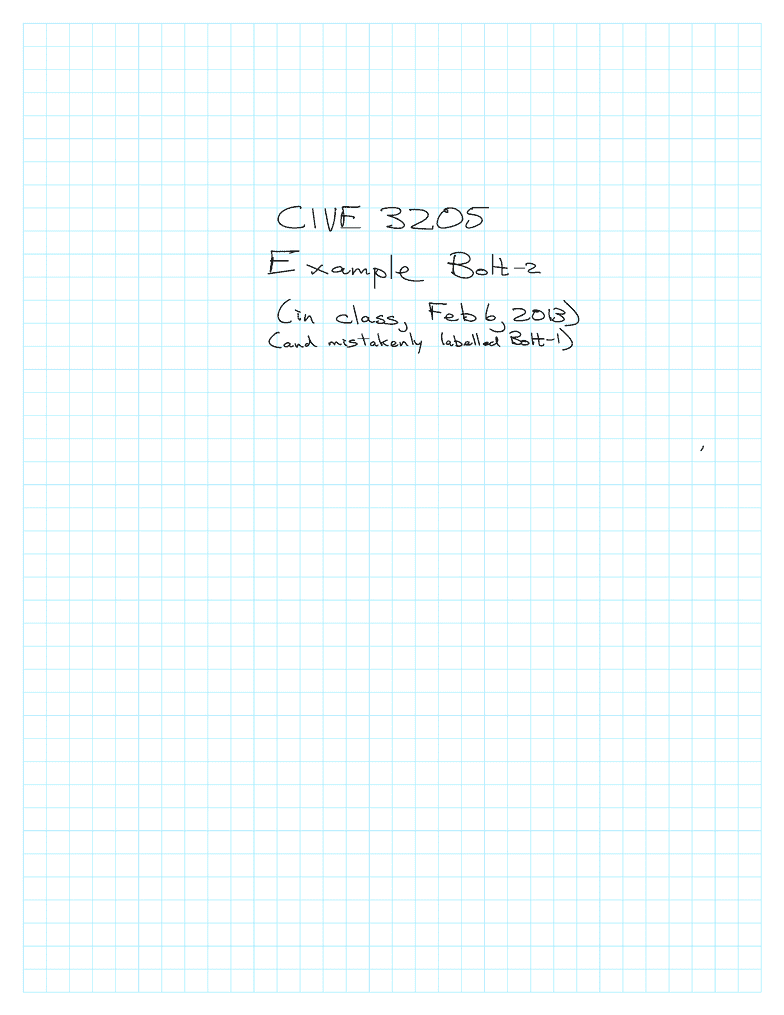 CIVE 3205
Example Bolt-2
(in class, Feb 6, 2013)
(and mistakenly labelled Bolt-1)